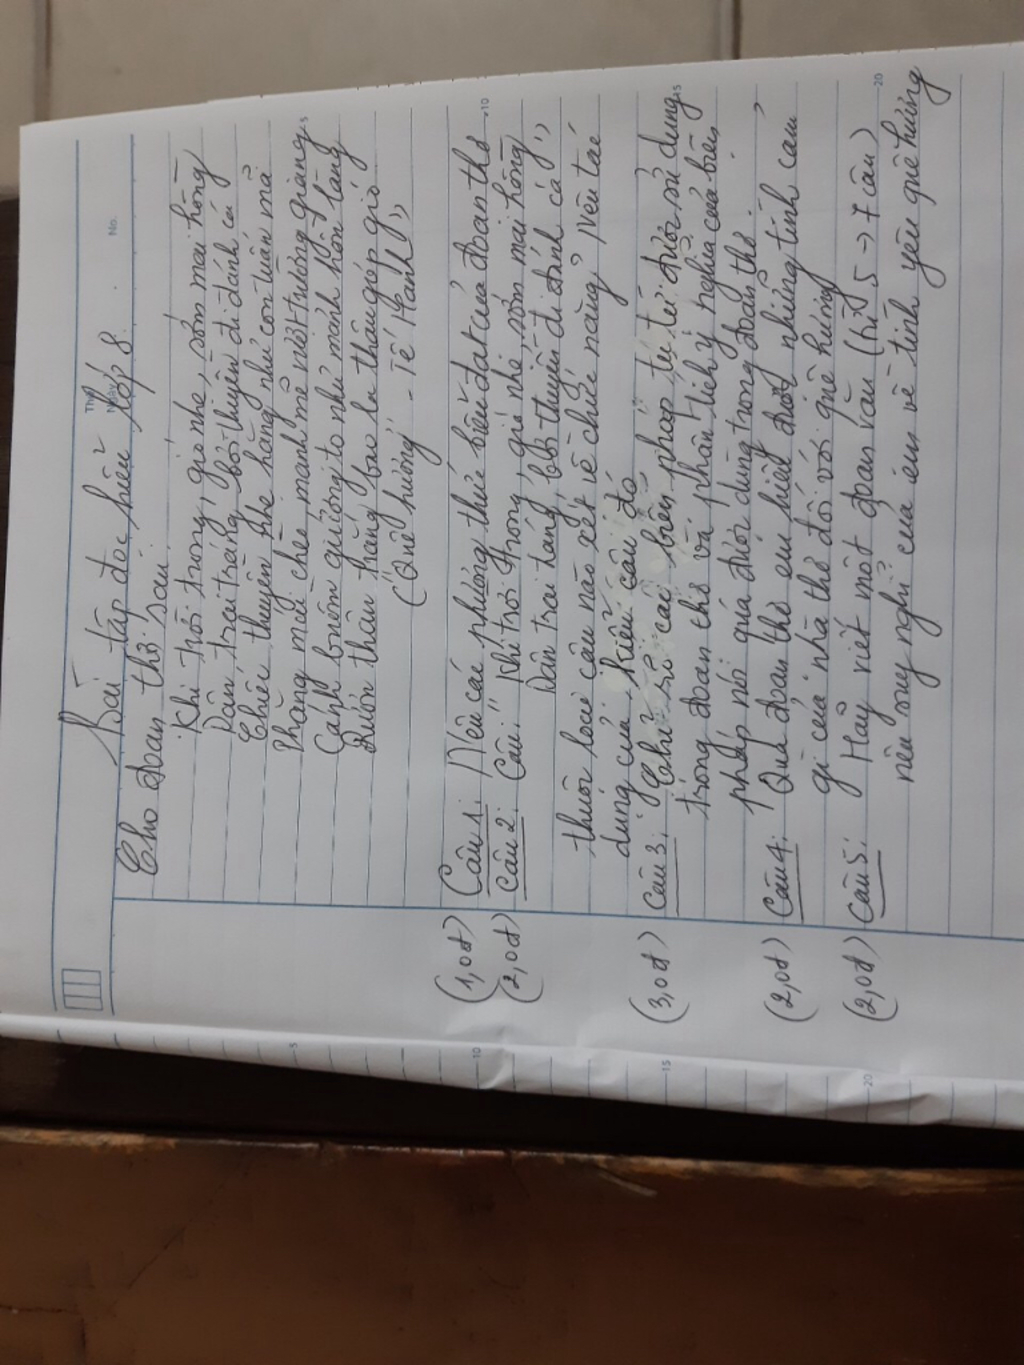 Thứ
Ngày
No.
Bài tập đọc hiểu lớp 8.
Cho đoạn thơ sau:
"Khi trời trong, gió nhẹ, sớm mai hồng
Dân trai tráng, bơi thuyền đi đánh cá
Chiếc thuyền nhẹ hăng như con tuấn mã
Phăng mái chèo mạnh mẽ vượt trường giang
Cánh buồm giương to như mảnh hồn làng
Rướn thân trắng bao la thâu góp gió
("Quê hương" - Tế Hanh)"
(1,0đ) Câu 1: Nêu các phương thức biểu đạt của đoạn thơ
(2,0đ) Câu 2: Câu: "Khi trời trong, gió nhẹ, sớm mai hồng
Dân trai tráng, bơi thuyền đi đánh cá",
thuộc loại câu nào xét về chức năng? Nêu tác
dụng của kiểu câu đó
(3,0đ) Câu 3: Chỉ rõ các biện pháp tu từ được sử dụng
trong đoạn thơ và phân tích ý nghĩa của biện
pháp nói quá được dùng trong đoạn thơ.
(2,0đ) Câu 4: Qua đoạn thơ em hiểu được những tình cảm
gì của nhà thơ đối với quê hương?
(2,0đ) Câu 5: Hãy viết một đoạn văn (từ 5 -> 7 câu)
nêu suy nghĩ của em về tình yêu quê hương
5
10
15
20
5
10
15
20